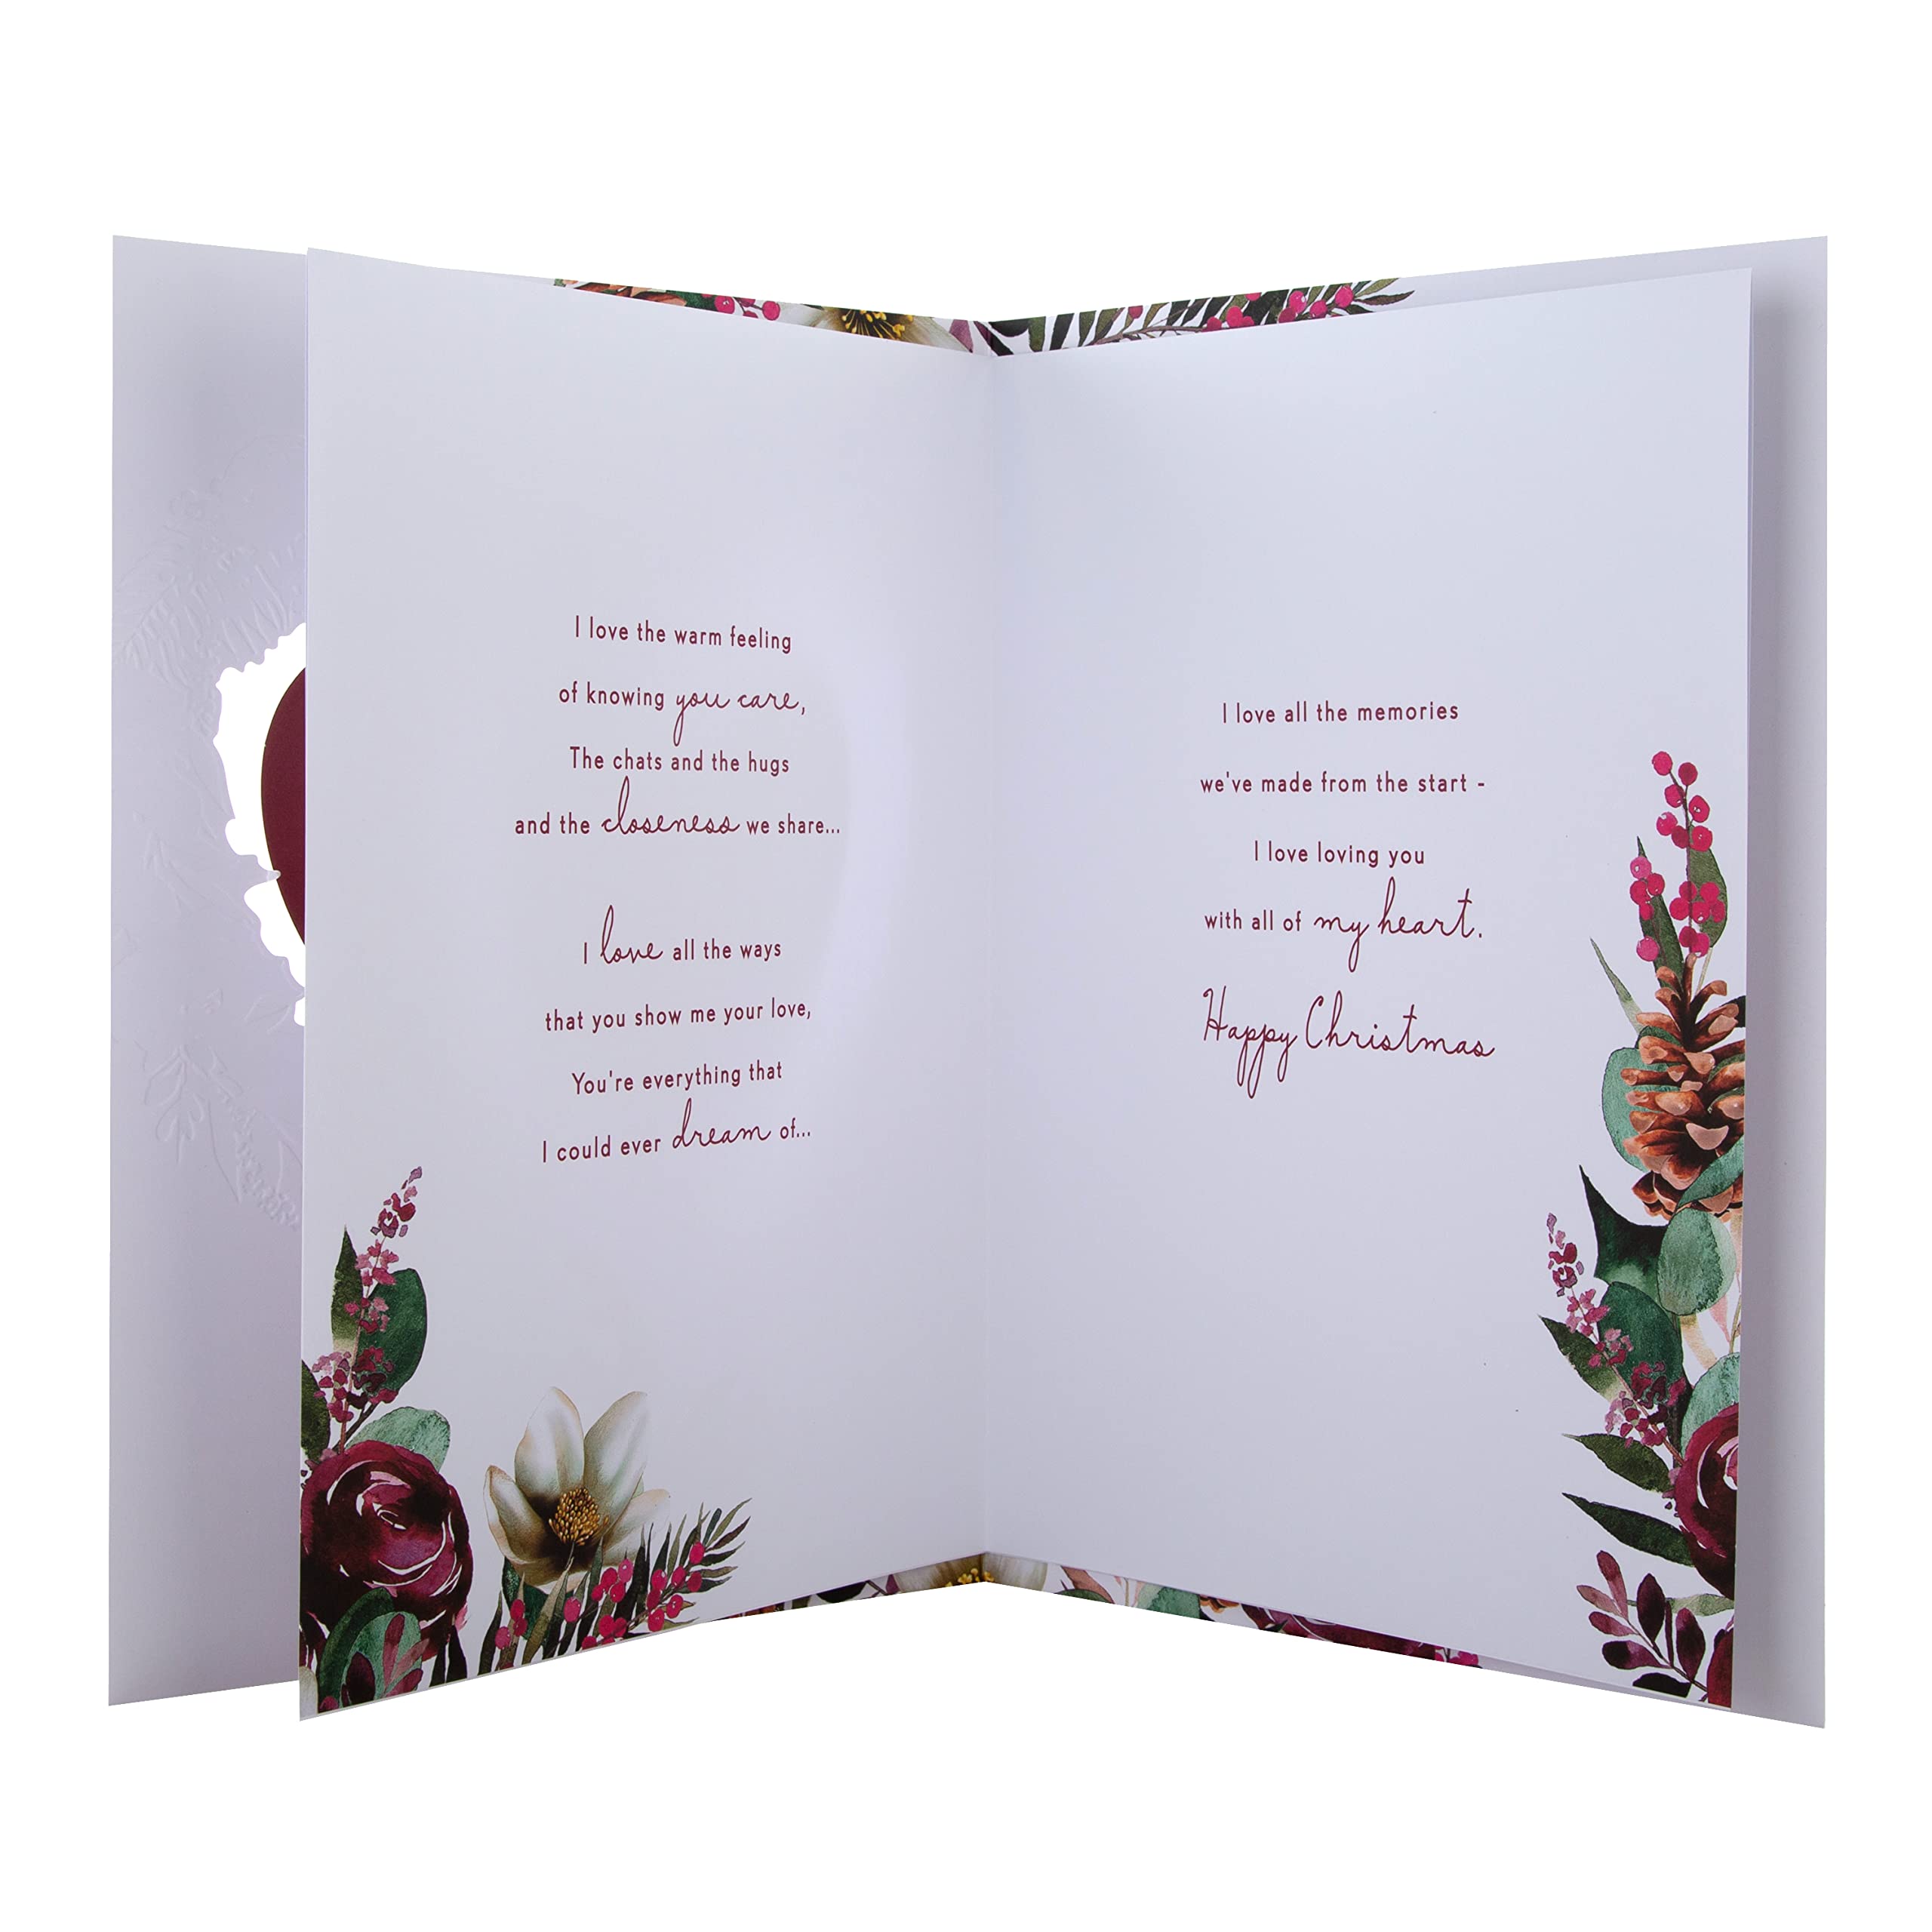 I love the warm feeling
of knowing you care,
The chats and the hugs
and the closeness we share...
I love all the ways
that you show me your love,
You're everything that
I could ever dream of...
I love all the memories
we've made from the start -
I love loving you
with all of my heart.
Happy Christmas